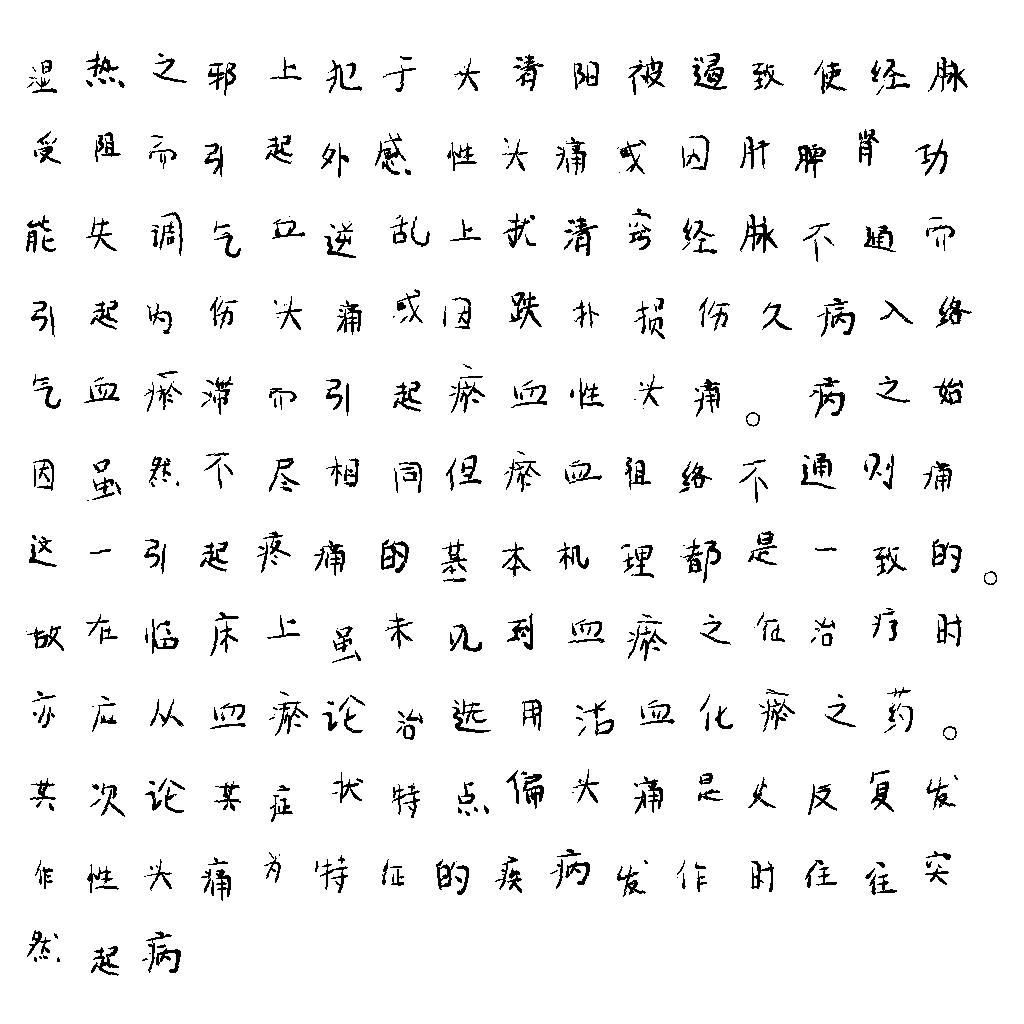 湿热之邪上犯于头清阳被遏致使经脉
受阻而引起外感性头痛或因肝脾肾功
能失调气血逆乱上扰清窍经脉不通而
引起内伤头痛或因跌扑损伤久病入络
气血瘀滞而引起瘀血性头痛。病之始
因虽然不尽相同但瘀血阻络不通则痛
这一引起疼痛的基本机理都是一致的。
故在临床上虽未见到血瘀之征治疗时
亦应从血瘀论治选用活血化瘀之药。
其次论其症状特点偏头痛是以反复发
作性头痛为特征的疾病发作时往往突
然起病